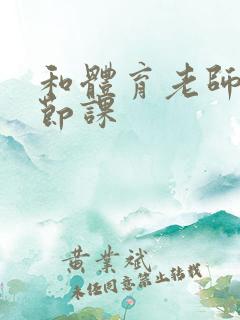 和體育老師
節課
黄業斌
未经同意禁止转载